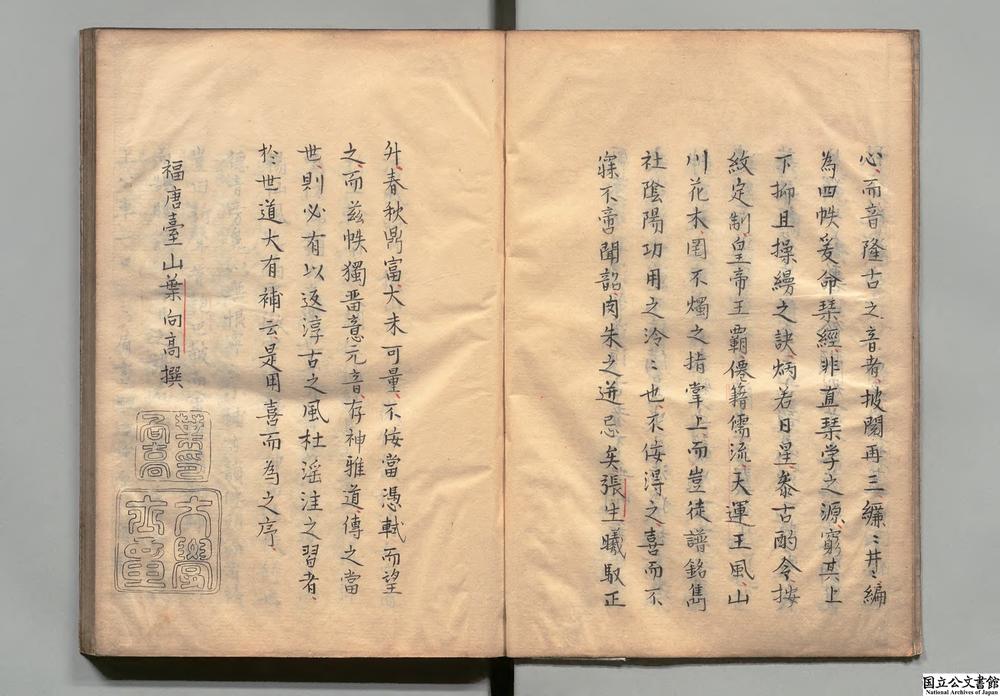 心而音隆古之音者披閱再三纚〻井〻編
為四帙爰命琴經非直琴学之源窮其上
下抑且操縵之訣炳若日星叅古酌今按
紋定制皇帝王覇僊籍儒流天運王風山
川花木罔不燭之指掌上而豈徒譜銘雋
社陰陽功用之泠〻也不佞得之喜而不
寐不啻聞韶肉朱之迸忌矣張生曦馭正
升春秋鼎富大未可量不佞當憑軾而望
之而兹帙獨畱意元音存神雅道傳之當
世則必有以返淳古之風杜滛洼之習者
於世道大有補云是用喜而為之序
福唐臺山葉向高撰
葉向高
大學士章
国立公文書館
National Archives of Japan